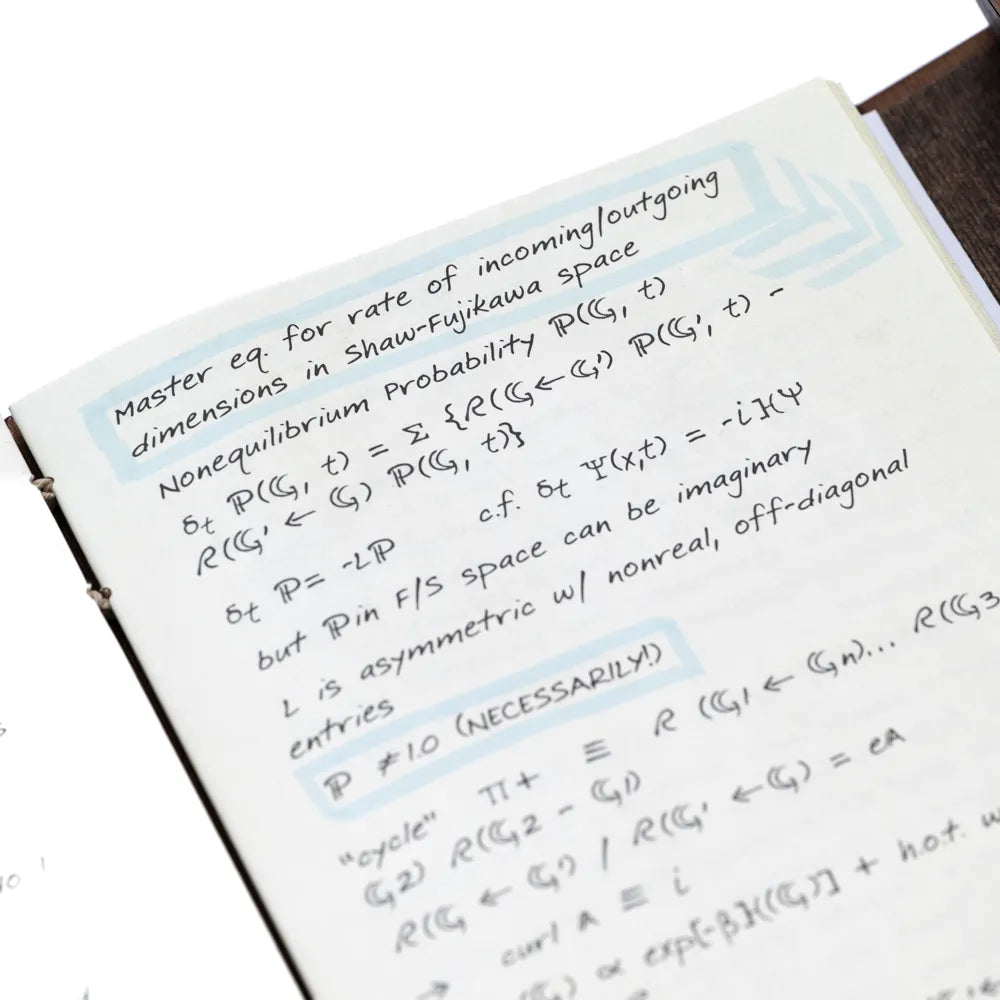 Master eq. for rate of incoming/outgoing
dimensions in Shaw-Fujikawa space
Nonequilibrium Probability ℙ(𝔾, t)
δt ℙ(𝔾, t) = Σ {R(𝔾←𝔾') ℙ(𝔾', t) -
R(𝔾' ← 𝔾) ℙ(𝔾, t)}
δt ℙ= -Lℙ c.f. δt Ψ(x,t) = -iℋΨ
but ℙ in F/S space can be imaginary
L is asymmetric w/ nonreal, off-diagonal
entries
ℙ ≠1.0 (NECESSARILY!)
"cycle" Π+ ≡ R (𝔾1 ← 𝔾n)... R(𝔾3
𝔾2) R(𝔾2 - 𝔾1)
R(𝔾 ← 𝔾') / R(𝔾' ←𝔾) = eA
→ curl A ≡ i
(𝔾) ∝ exp[-βℋ(𝔾)] + h.o.t.